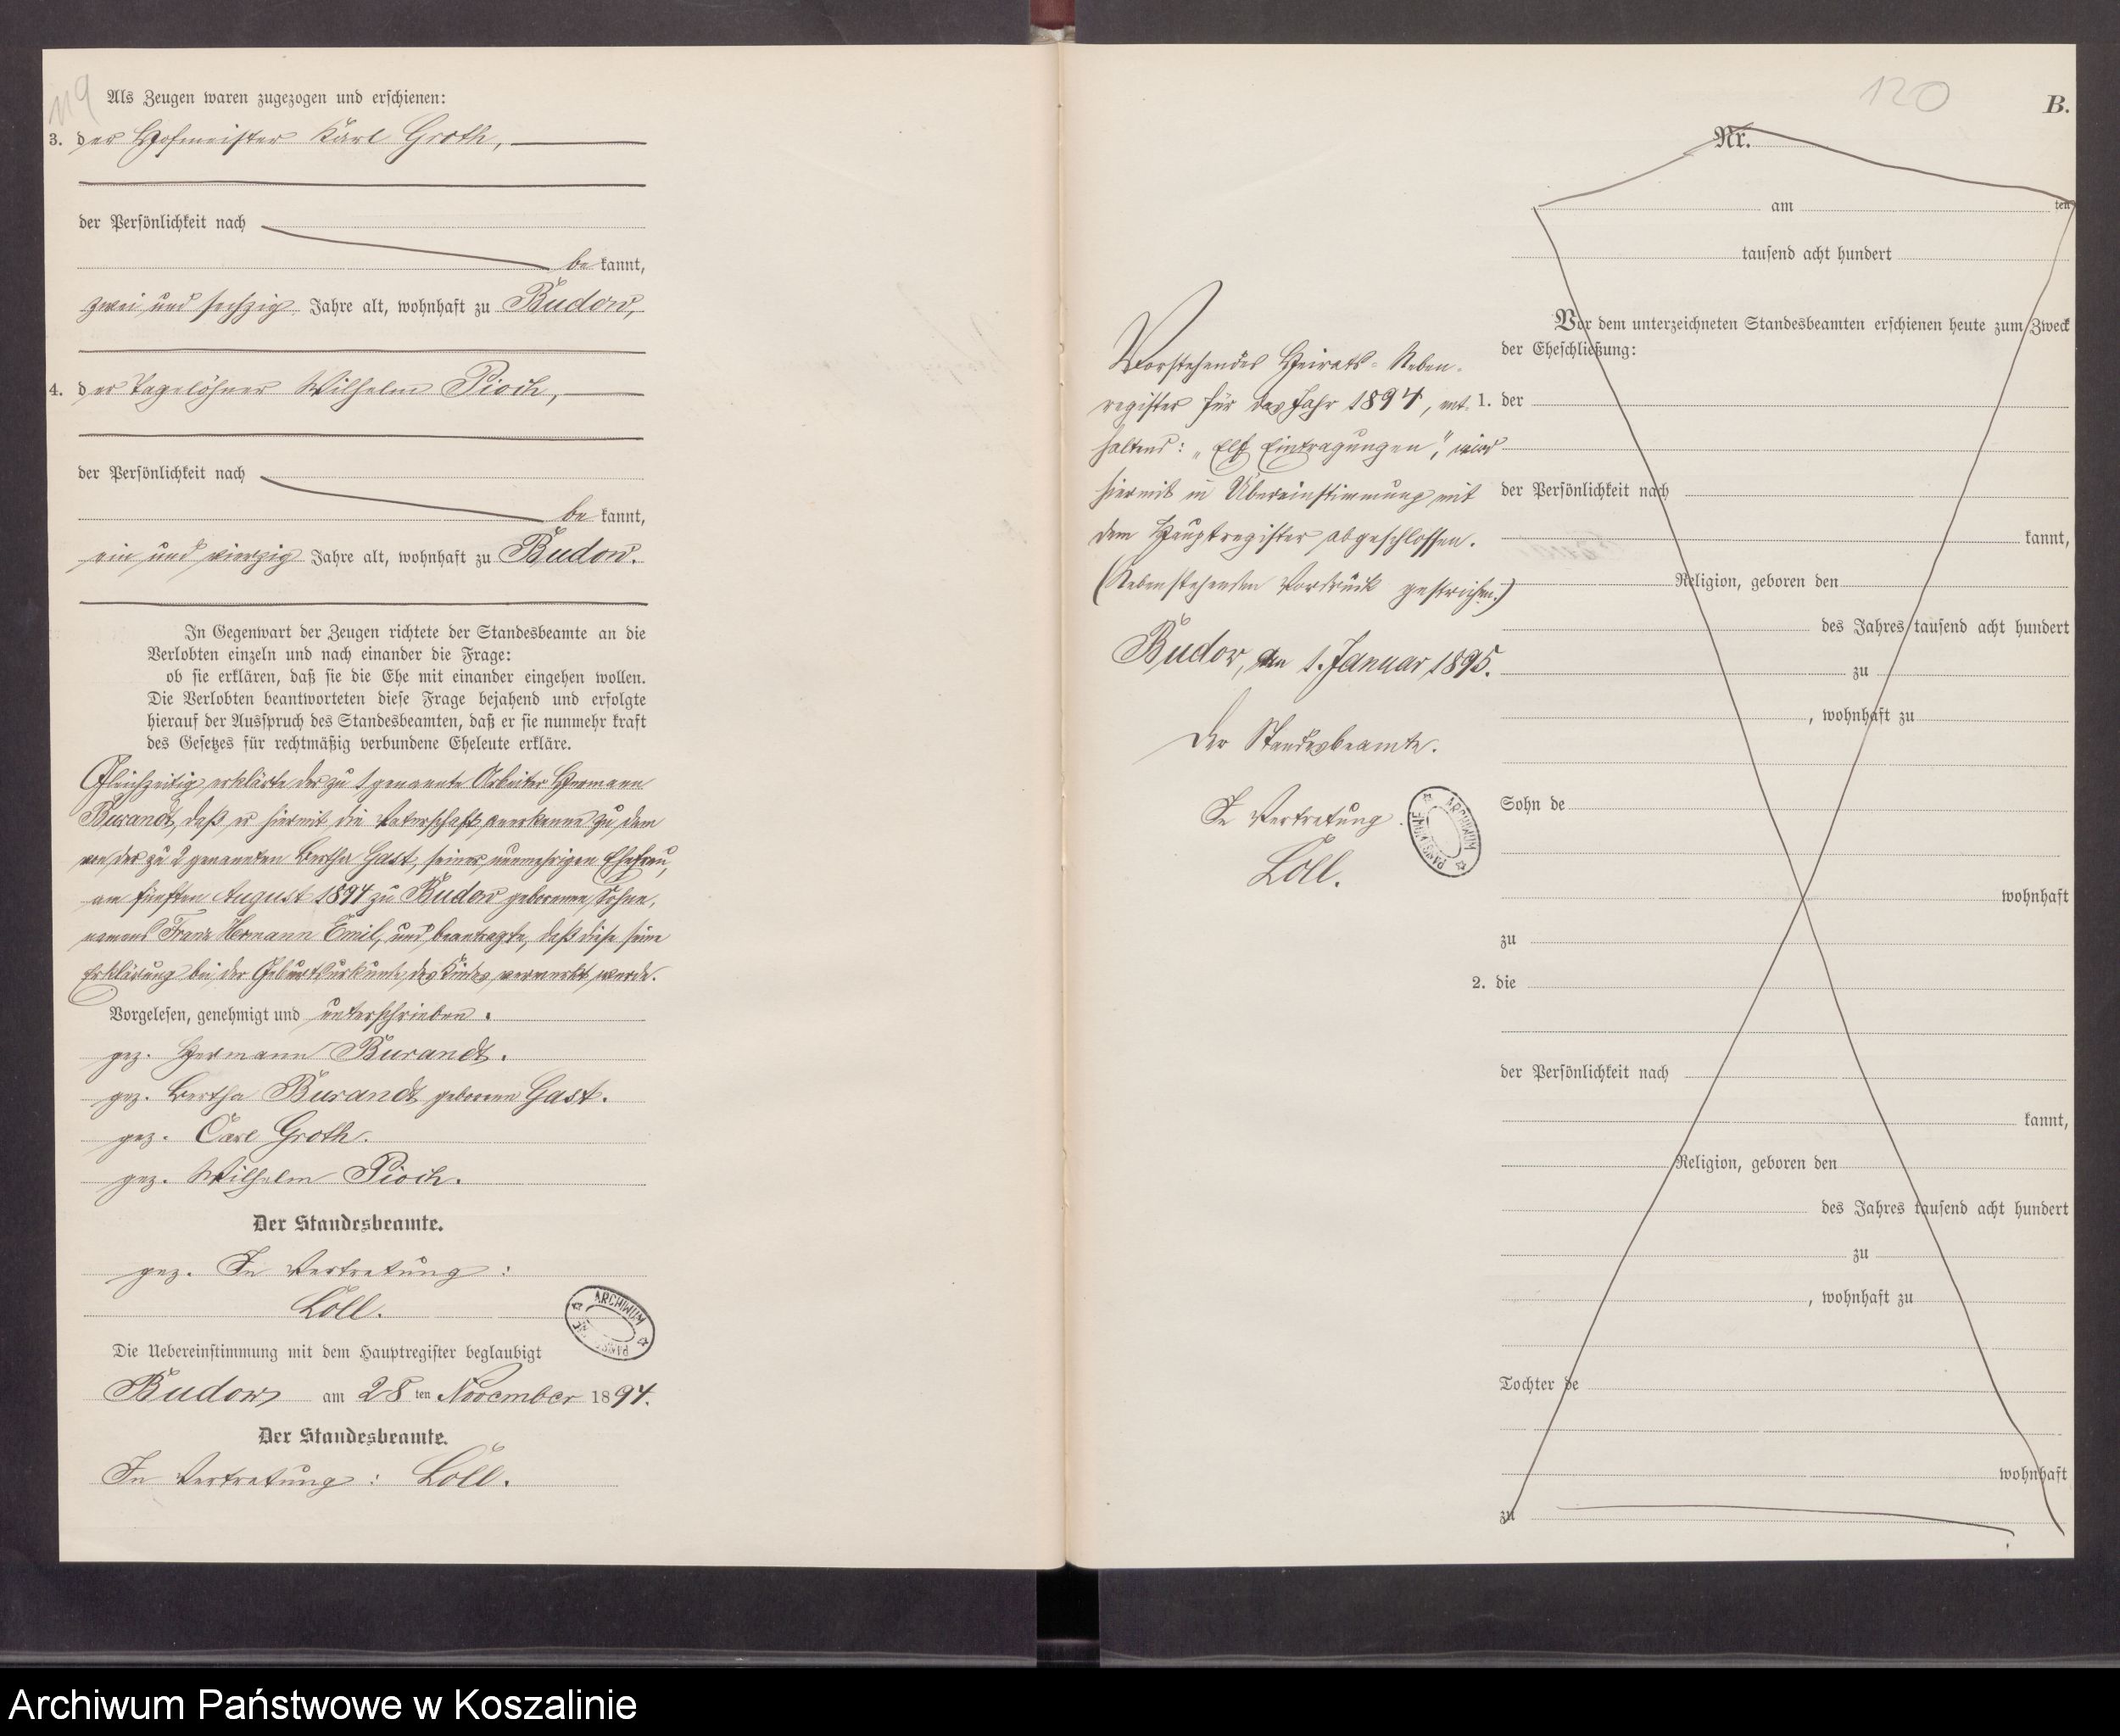 119
Als Zeugen waren zugezogen und erschienen:
3. der Hofmeister Karl Groth,
der Persönlichkeit nach
be kannt,
zwei und sechzig Jahre alt, wohnhaft zu Budow,
4. der Tagelöhner Wilhelm Pioch,
der Persönlichkeit nach
be kannt,
ein und vierzig Jahre alt, wohnhaft zu Budow.
In Gegenwart der Zeugen richtete der Standesbeamte an die
Verlobten einzeln und nach einander die Frage:
ob sie erklären, daß sie die Ehe mit einander eingehen wollen.
Die Verlobten beantworteten diese Frage bejahend und erfolgte
hierauf der Ausspruch des Standesbeamten, daß er sie nunmehr kraft
des Gesetzes für rechtmäßig verbundene Eheleute erkläre.
Gleichzeitig erklärte der zu 1 genannte Arbeiter Hermann
Burandt, daß er hiermit die Vaterschaft anerkenne zu dem
von der zu 2 genannten Bertha Gast, seiner nunmehrigen Ehefrau,
am fünften August 1894 zu Budow geborenen Sohne,
namens Franz Hermann Emil, und beantragte, daß diese seine
Erklärung bei der Geburtsurkunde des Kindes vermerkt werde.
Vorgelesen, genehmigt und unterschrieben.
gez. Hermann Burandt.
gez. Bertha Burandt geborene Gast.
gez. Carl Groth.
gez. Wilhelm Pioch.
Der Standesbeamte.
gez. In Vertretung:
Löll.
ARCHIWUM
Die Uebereinstimmung mit dem Hauptregister beglaubigt
Budow am 28 ten November 1894.
Der Standesbeamte.
In Vertretung: Löll.
120
B.
Nr.
am ten
tausend acht hundert
Vor dem unterzeichneten Standesbeamten erschienen heute zum Zweck
der Eheschließung:
1. der
der Persönlichkeit nach
kannt,
Religion, geboren den
des Jahres tausend acht hundert
zu
, wohnhaft zu
Sohn de
wohnhaft
zu
2. die
der Persönlichkeit nach
kannt,
Religion, geboren den
des Jahres tausend acht hundert
zu
, wohnhaft zu
Tochter de
wohnhaft
zu
Vorstehendes Heirats-Neben-
register für das Jahr 1894, ent-
haltend: „Elf Eintragungen", wird
hiermit in Übereinstimmung mit
dem Hauptregister abgeschlossen.
(Nebenstehenden Vordruck gestrichen.)
Budow, den 1. Januar 1895.
Der Standesbeamte.
In Vertretung.
Löll.
ARCHIWUM
Archiwum Państwowe w Koszalinie